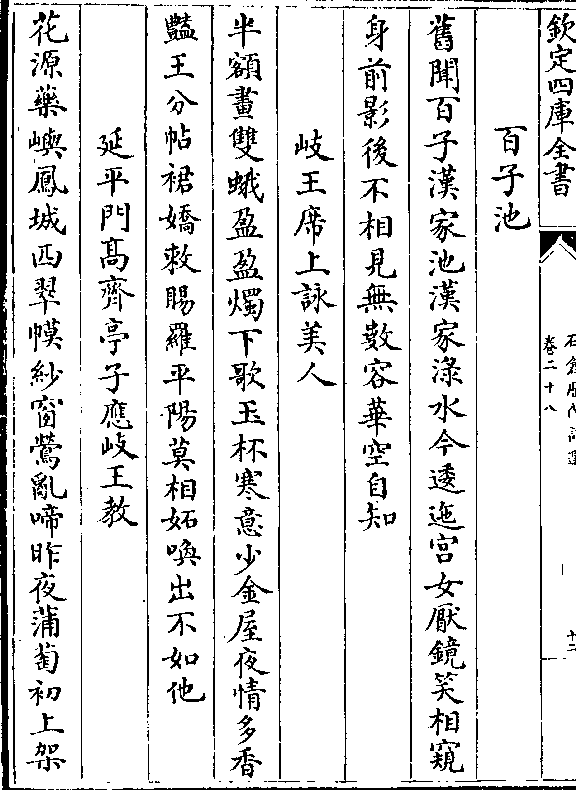 欽定四庫全書
卷二十八
百子池
舊聞百子漢家池漢家渌水今逶迤宫女厭鏡笑相窺
身前影後不相見無數容華空自知
岐王席上詠美人
半額畫雙蛾盈盈燭下歌玉杯寒意少金屋夜情多香
豔王分帖裙嬌敕賜羅平陽莫相妬喚出不如他
延平門髙齊亭子應岐王教
花源藥嶼鳳城西翠幙紗窗鶯亂啼昨夜蒲萄初上架